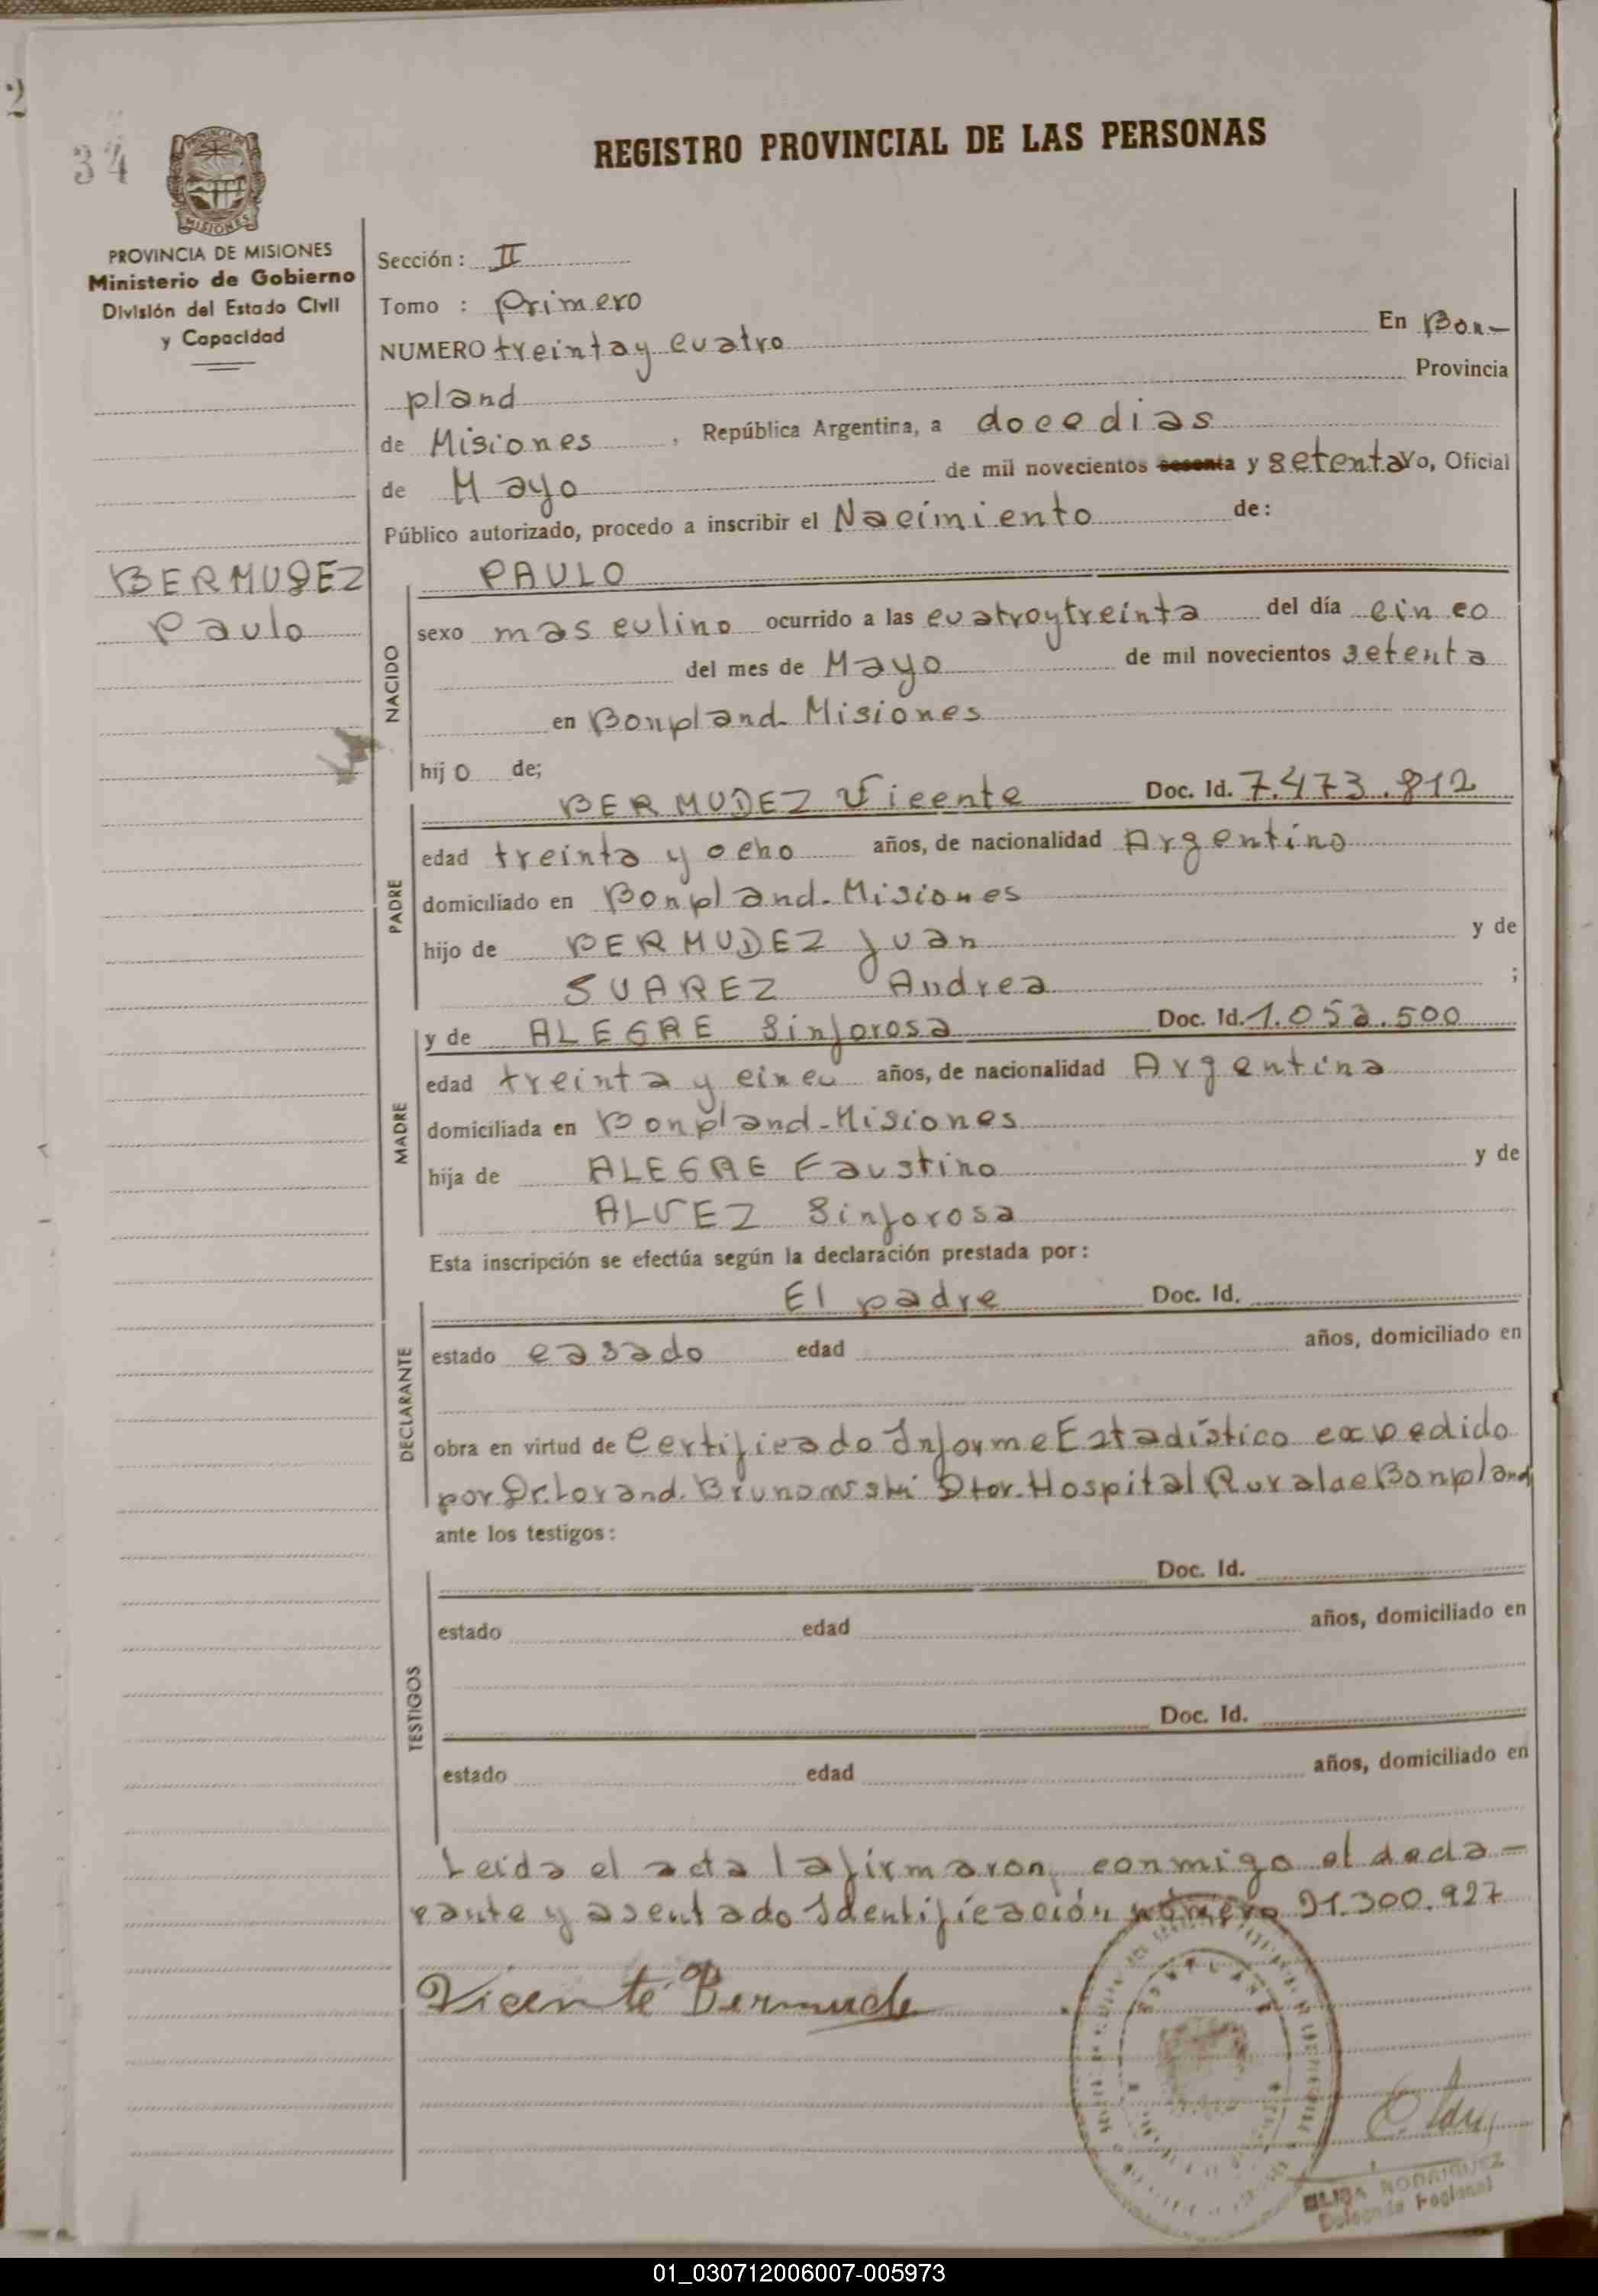 2
34
REGISTRO PROVINCIAL DE LAS PERSONAS
PROVINCIA DE MISIONES
MISIONES
PROVINCIA DE MISIONES
Ministerio de Gobierno
División del Estado Civil
y Capacidad
Sección: II
Tomo : Primero
NUMERO treinta y cuatro En Bon-
pland Provincia
de Misiones, República Argentina, a doce dias
de Mayo de mil novecientos sesenta y setenta Yo, Oficial
Público autorizado, procedo a inscribir el Nacimiento de:
BERMUDEZ
Paulo
NACIDO
PAULO
sexo masculino ocurrido a las cuatro y treinta del día cinco
del mes de Mayo de mil novecientos setenta
en Bonpland-Misiones
hijo de;
PADRE
BERMUDEZ Vicente Doc. Id. 7.473.812
edad treinta y ocho años, de nacionalidad Argentino
domiciliado en Bonpland-Misiones
hijo de BERMUDEZ Juan y de
SUAREZ Andrea ;
MADRE
y de ALEGRE Sinforosa Doc. Id. 1.052.500
edad treinta y cinco años, de nacionalidad Argentina
domiciliada en Bonpland-Misiones
hija de ALEGRE Faustino y de
ALVEZ Sinforosa
Esta inscripción se efectúa según la declaración prestada por:
DECLARANTE
El padre Doc. Id.
estado casado edad años, domiciliado en
obra en virtud de Certificado Informe Estadístico expedido
por Dr. Lorand. Brunowski Dtor. Hospital Rural de Bonpland
ante los testigos:
TESTIGOS
Doc. Id.
estado edad años, domiciliado en
Doc. Id.
estado edad años, domiciliado en
Leida el acta la firmaron, conmigo el decla-
rante y asentado Identificación número 21.300.927
Vicente Bermude
ELISA RODRIGUEZ
Delegada Regional
01_030712006007-005973